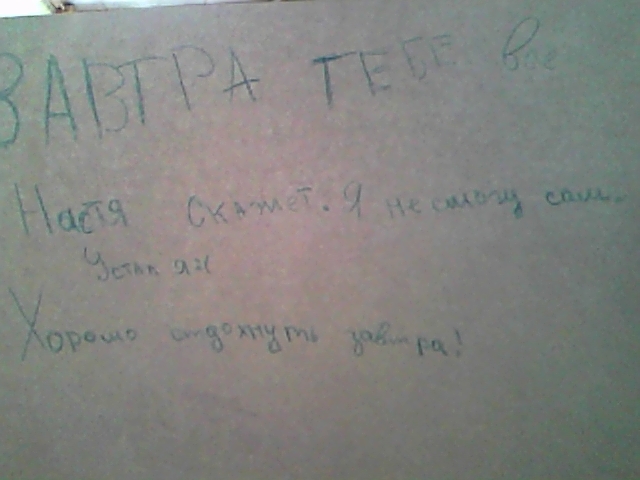 ЗАВТРА ТЕБЕ все
Настя Скажет. Я не смогу сам.
Устал я:(
Хорошо отдохнуть завтра!